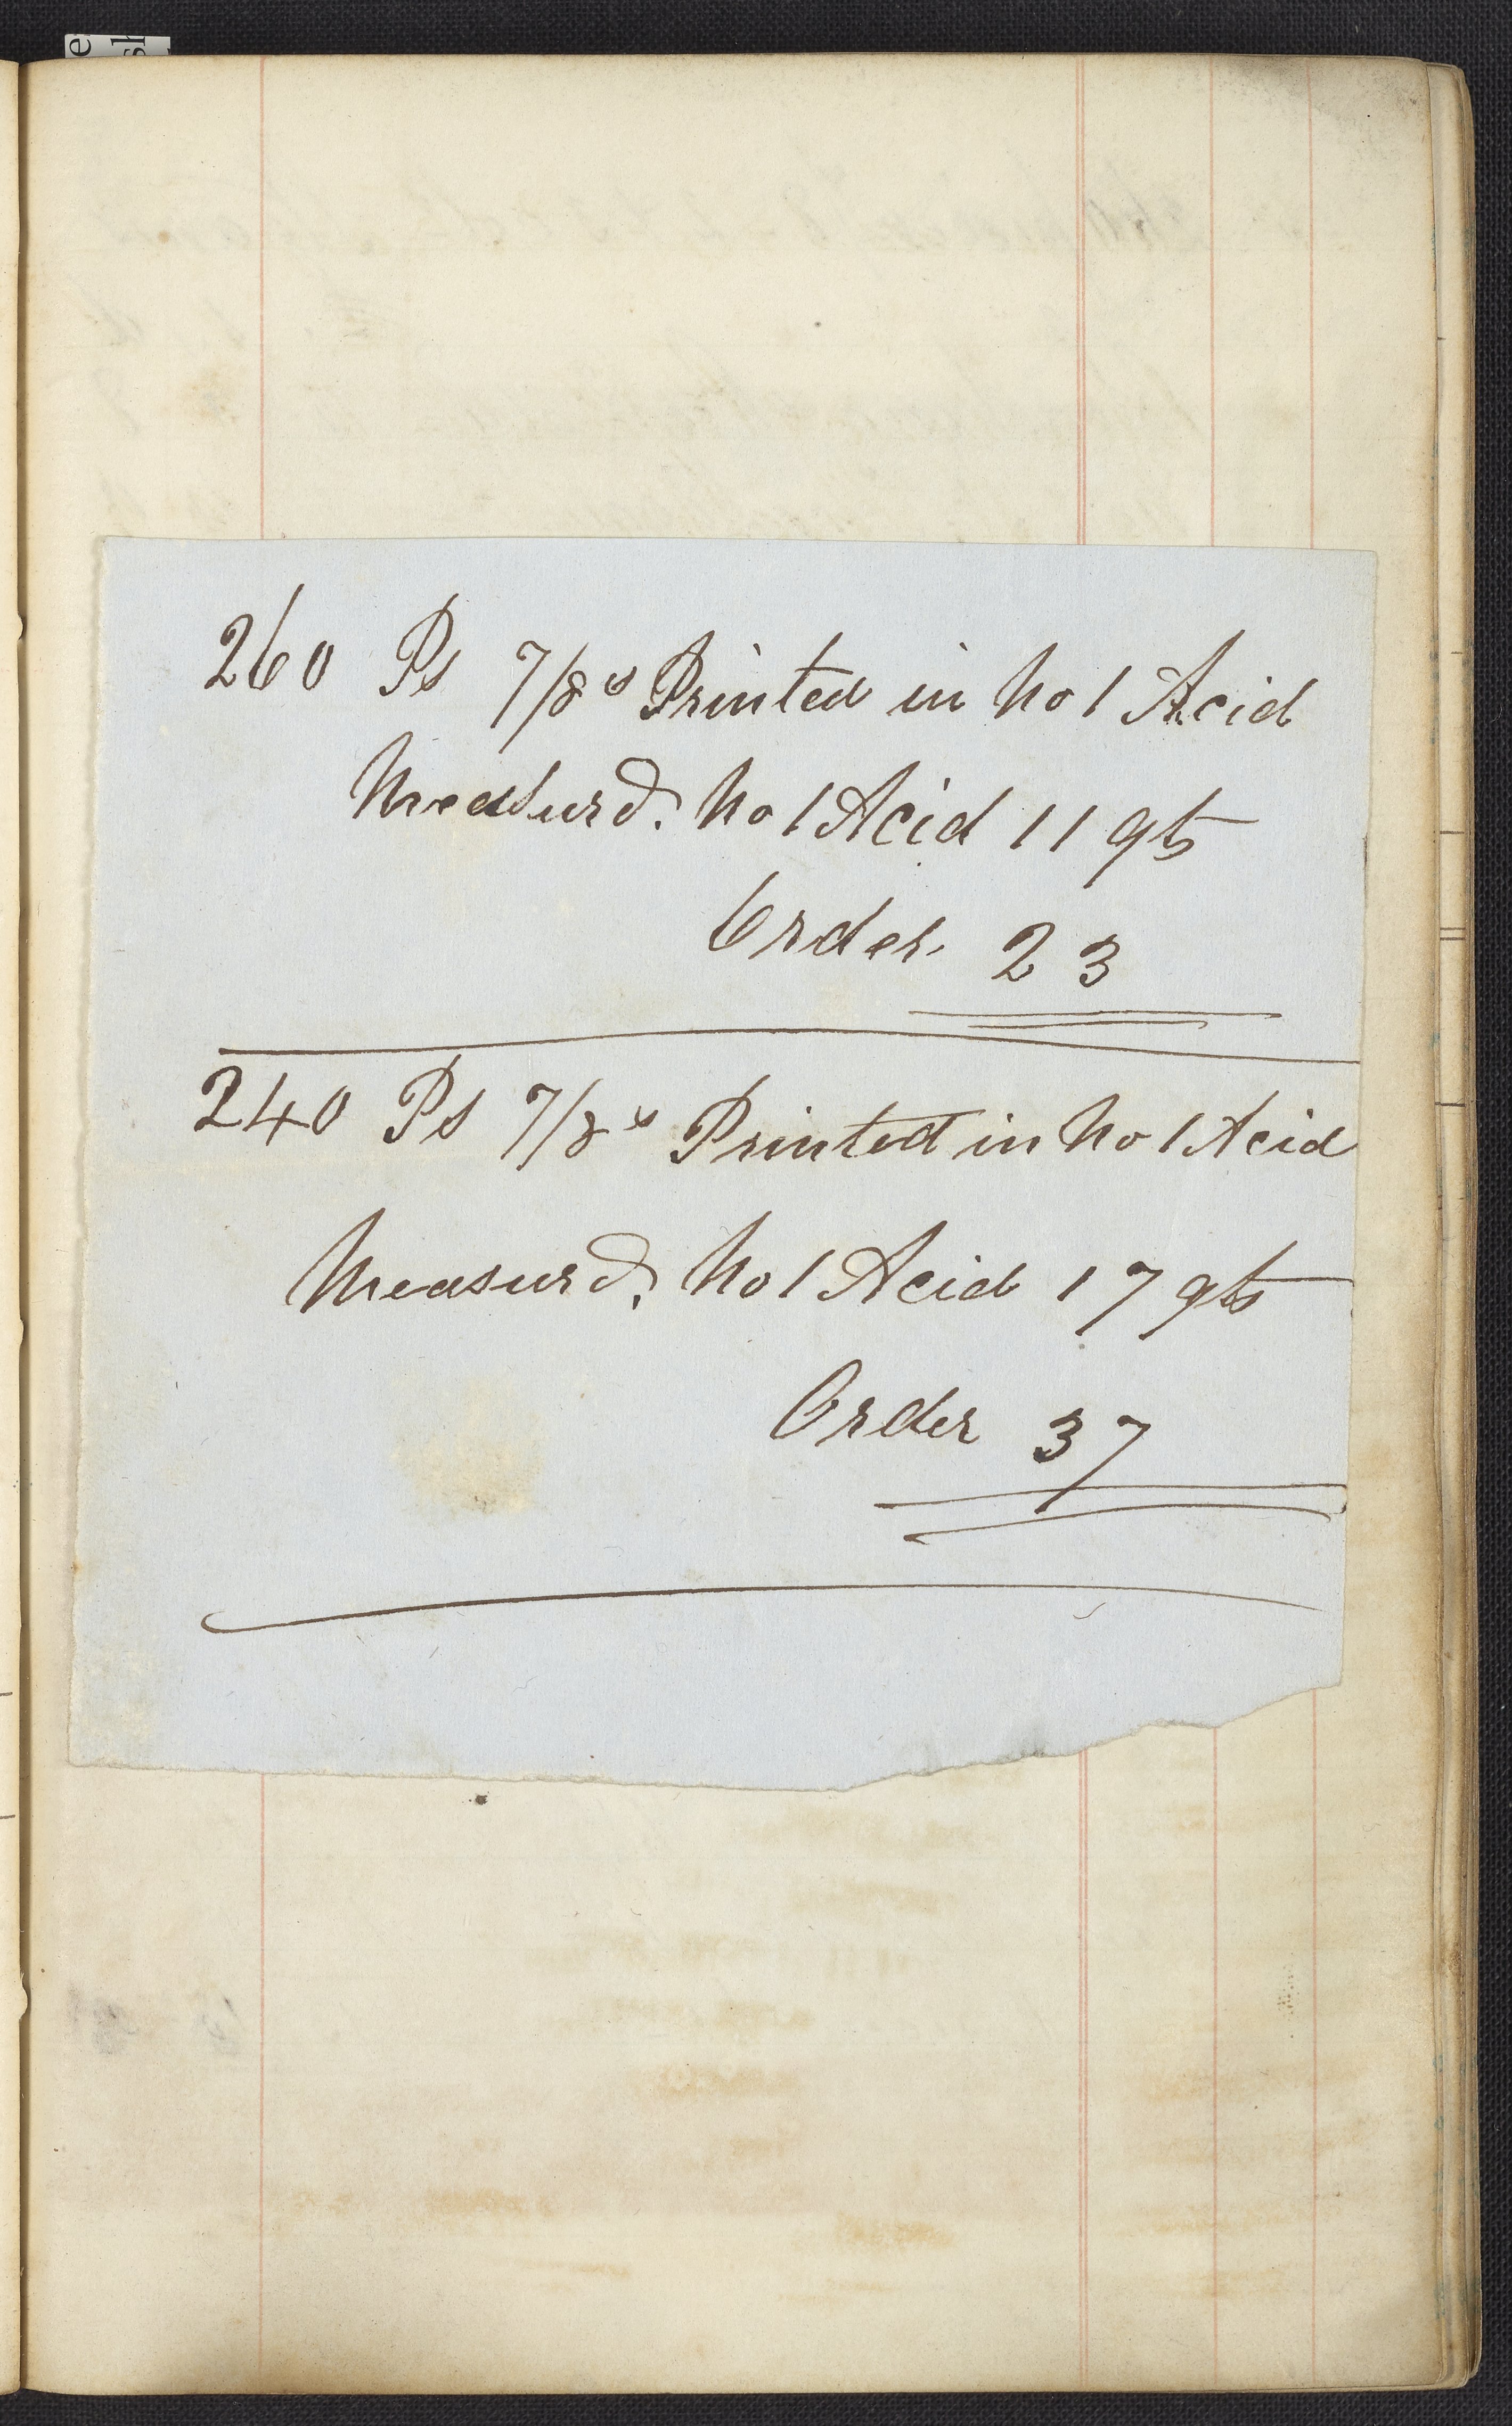 260 Ps 7/8s Printed in No 1 Acid
Measurd. No 1 Acid 11 qts
Order. 23
240 Ps 7/8s Printed in No 1 Acid
Measurd. No 1 Acid 17 qts
Order 37